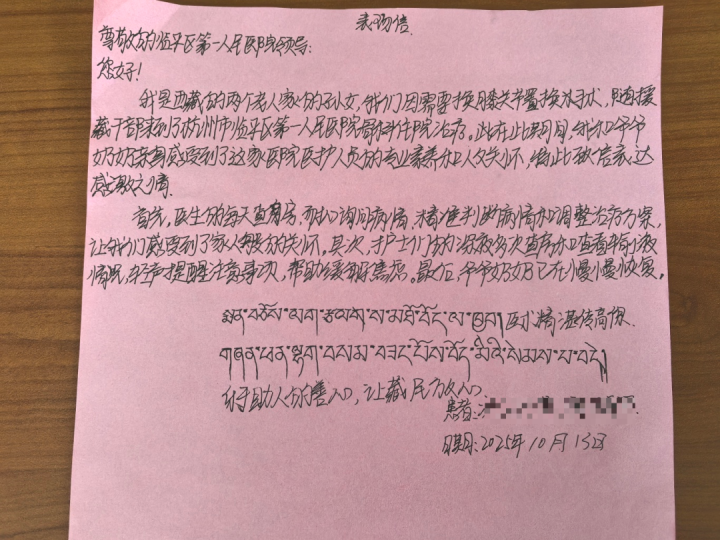 表扬信
尊敬的临平区第一人民医院领导:
您好!
我是西藏的两个老人家的孙女,我们因需要换膝关节置换手术,随援
藏干部来到了杭州市临平区第一人民医院骨科住院治疗。此在此期间,我和爷爷
奶奶亲身感受到了这家医院医护人员的专业素养和人文关怀,特此致信表达
感激之情。
首先,医生们每天查房,细心询问病情,精准判断病情和调整治疗方案,
让我们感受到了家人般的关怀。其次,护士们的深夜多次查房和查看输液
情况,轻声提醒注意事项,帮助缓解焦虑。最后,爷爷奶奶已在慢慢恢复。
医术精湛传高原
གཞན་ཕན་ལྷག་བསམ་བཟང་པོས་བོད་མིའི་སེམས་པ་བདེ།
乐于助人的善心,让藏民放心
患者:
日期:2025年10月13日